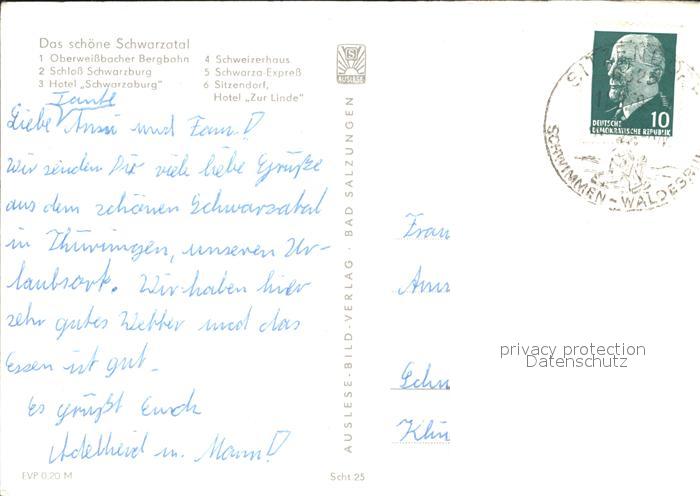 Das schöne Schwarzatal
1 Oberweißbacher Bergbahn
2 Schloß Schwarzburg
3 Hotel „Schwarzaburg"
4 Schweizerhaus
5 Schwarza-Expreß
6 Sitzendorf,
Hotel „Zur Linde"
AUSLESE
Tante
Liebe Anni und Fam.!
Wir senden Dir viele liebe Grüße
aus dem schönen Schwarzatal
in Thüringen, unseren Ur-
laubsort. Wir haben hier
sehr gutes Wetter und das
Essen ist gut.
Es grüßt Euch
Adelheid u. Mann!
EVP 0,20 M
AUSLESE-BILD-VERLAG · BAD SALZUNGEN
Scht 25
10
DEUTSCHE
DEMOKRATISCHE REPUBLIK
SCHWIMMEN - WALDESRU
Frau
privacy protection
Datenschutz